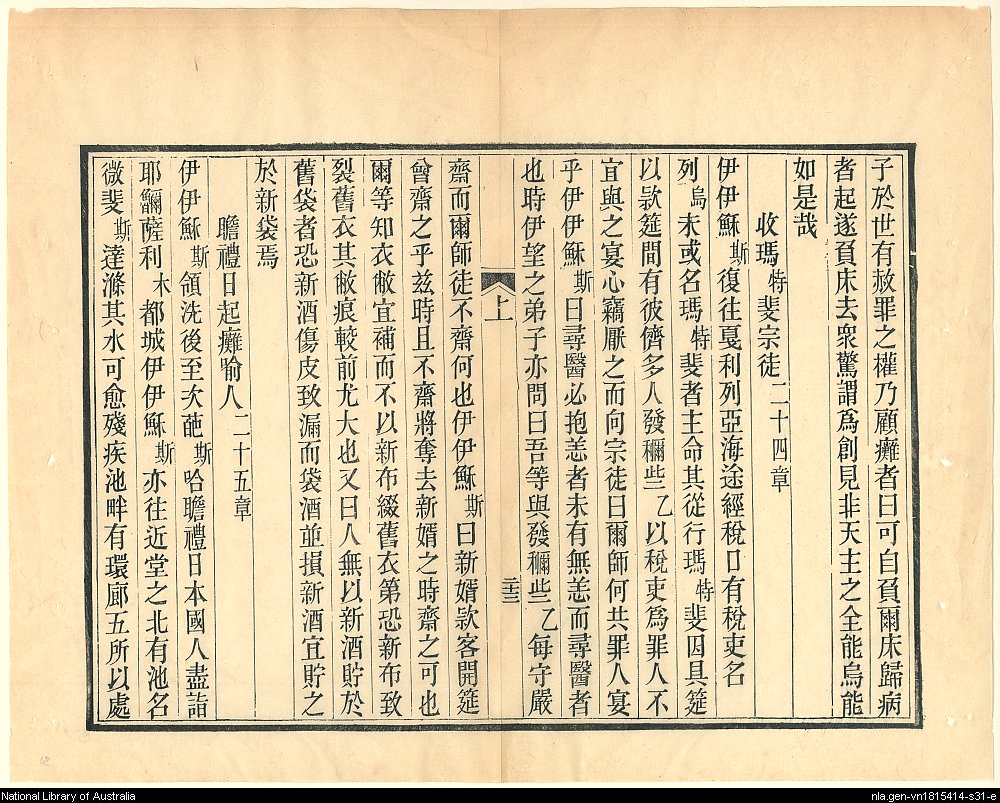 子於世有赦罪之權乃顧癱者曰可自負爾床歸病
者起遂負床去衆驚謂爲創見非天主之全能烏能
如是哉
收瑪特斐宗徒二十四章
伊伊穌斯復往戛利列亞海途經稅口有稅吏名
列烏未或名瑪特斐者主命其從行瑪特斐因具筵
以款筵間有彼儕多人發穪些乙以稅吏爲罪人不
宜與之宴心竊厭之而向宗徒曰爾師何共罪人宴
乎伊伊穌斯曰尋醫必抱恙者未有無恙而尋醫者
也時伊望之弟子亦問曰吾等與發穪些乙每守嚴
上
二十三
齋而爾師徒不齋何也伊伊穌斯曰新婿款客開筵
曾齋之乎兹時且不齋將奪去新婿之時齋之可也
爾等知衣敝宜補而不以新布綴舊衣第恐新布致
裂舊衣其敝痕較前尤大也又曰人無以新酒貯於
舊袋者恐新酒傷皮致漏而袋酒並損新酒宜貯之
於新袋焉
瞻禮日起癱喻人二十五章
伊伊穌斯領洗後至次葩斯哈瞻禮日本國人盡詣
耶穪薩利木都城伊伊穌斯亦往近堂之北有池名
微斐斯達滌其水可愈殘疾池畔有環廊五所以處
National Library of Australia
nla.gen-vn1815414-s31-e